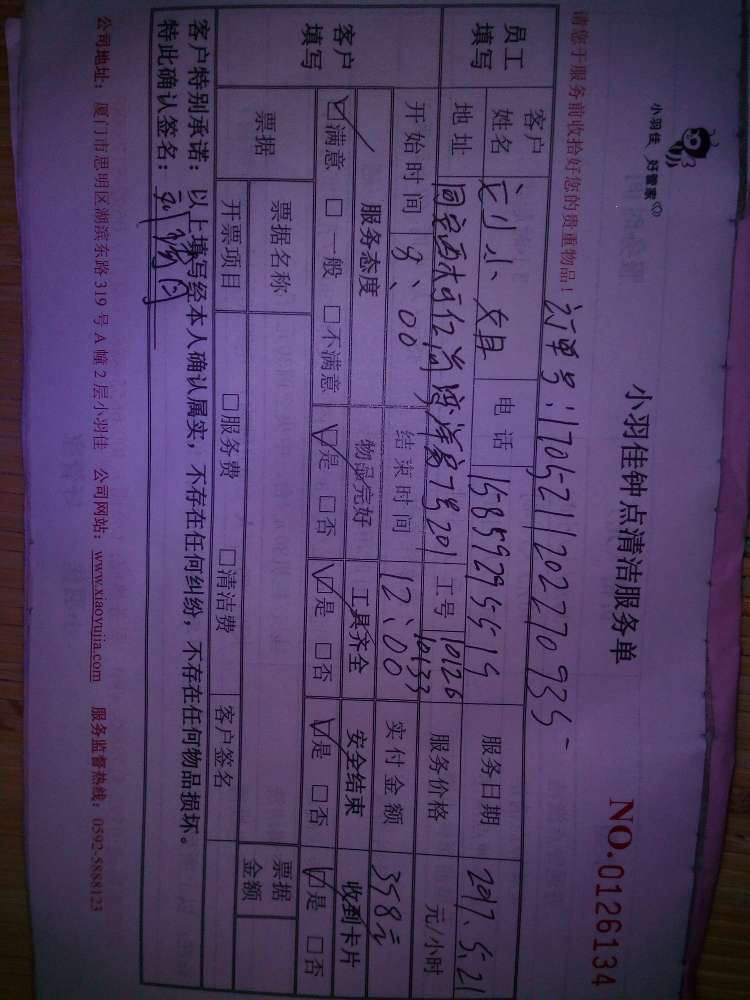 小羽佳 好管家
小羽佳钟点清洁服务单
NO.0126134
请您于服务前收拾好您的贵重物品!
订单号:170521120227093
员工填写
客户姓名 刘小 电话 15859295515 服务日期 2017.5.21
地址 工号 10126 10133 服务价格 元/小时
开始时间 8:00 结束时间 12:00 实付金额 358元
客户填写
服务态度 物品完好 工具齐全 安全结束 收到卡片
☑满意 □一般 □不满意 ☑是 □否 ☑是 □否 ☑是 □否 ☑是 □否
票据 票据名称 票据金额
开票项目 □服务费 □清洁费 客户签名
客户特别承诺:以上填写经本人确认属实,不存在任何纠纷,不存在任何物品损坏。
特此确认签名:
公司地址:厦门市思明区湖滨东路 319 号 A 幢 2 层小羽佳 公司网站:www.xiaoyujia.com 服务监督热线:0592-5888123